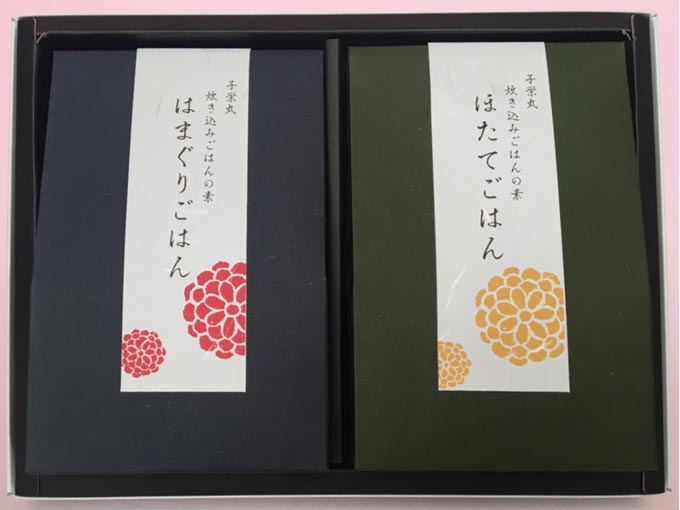 子栄丸
炊き込みごはんの素
はまぐりごはん
子栄丸
炊き込みごはんの素
ほたてごはん